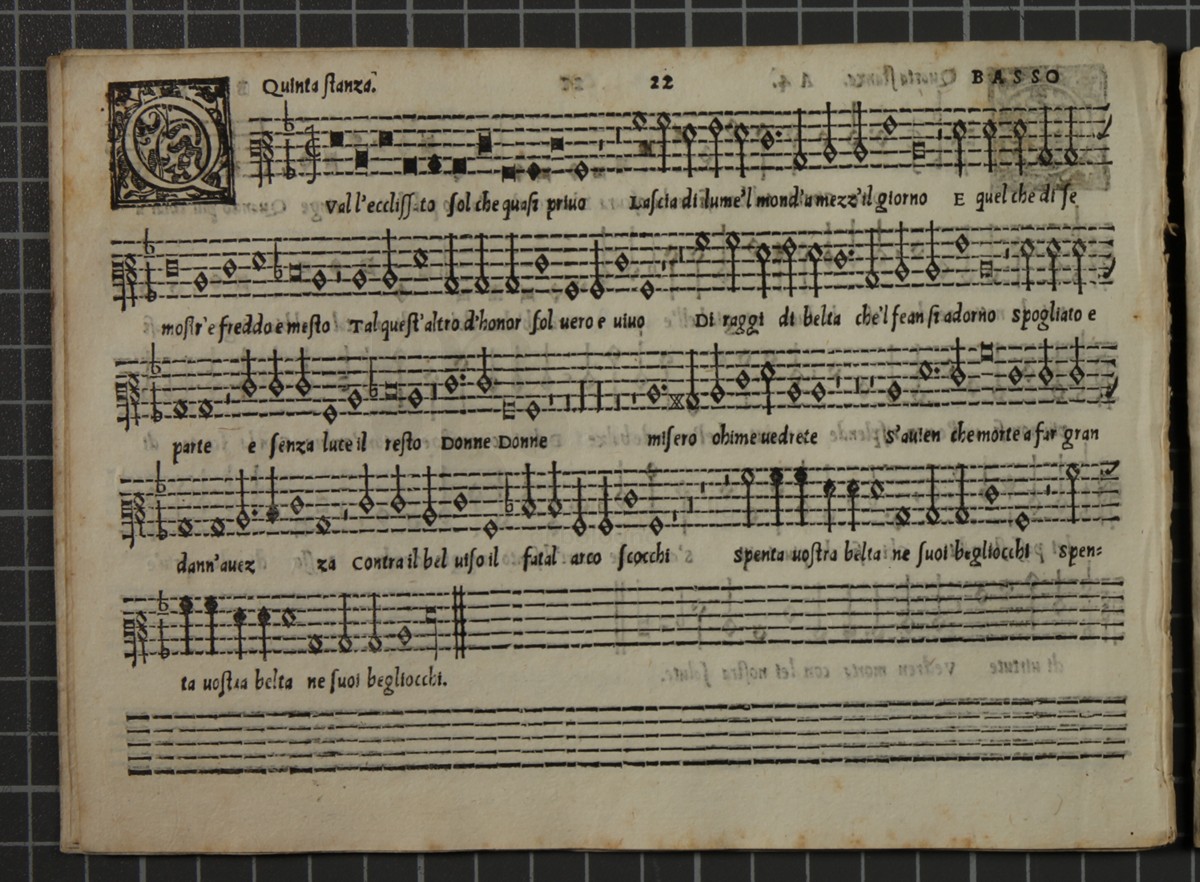 Quinta stanza. 22 BASSO
QVal l'ecclissato sol che quasi priuo Lascia di lume'l mond'a mezz'il giorno E quel che di se
mostr'e freddo e mesto Tal quest'altro d'honor sol uero e uiuo Di raggi di belta che'l fean si adorno spogliato e
parte e senza luce il resto Donne Donne misero ohime uedrete s'auien che morte a far gran
dann'auez za Contra il bel uiso il fatal arco scocchi Spenta uostra belta ne suoi begliocchi Spen=
ta uostra belta ne suoi begliocchi.